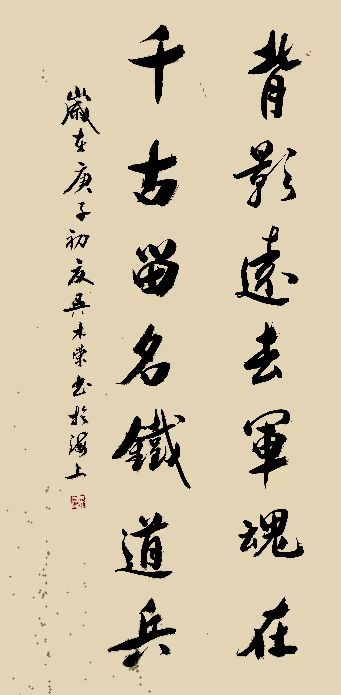 背影遠去軍魂在
千古留名鐵道兵
歲在庚子初夏吳木榮书於海上